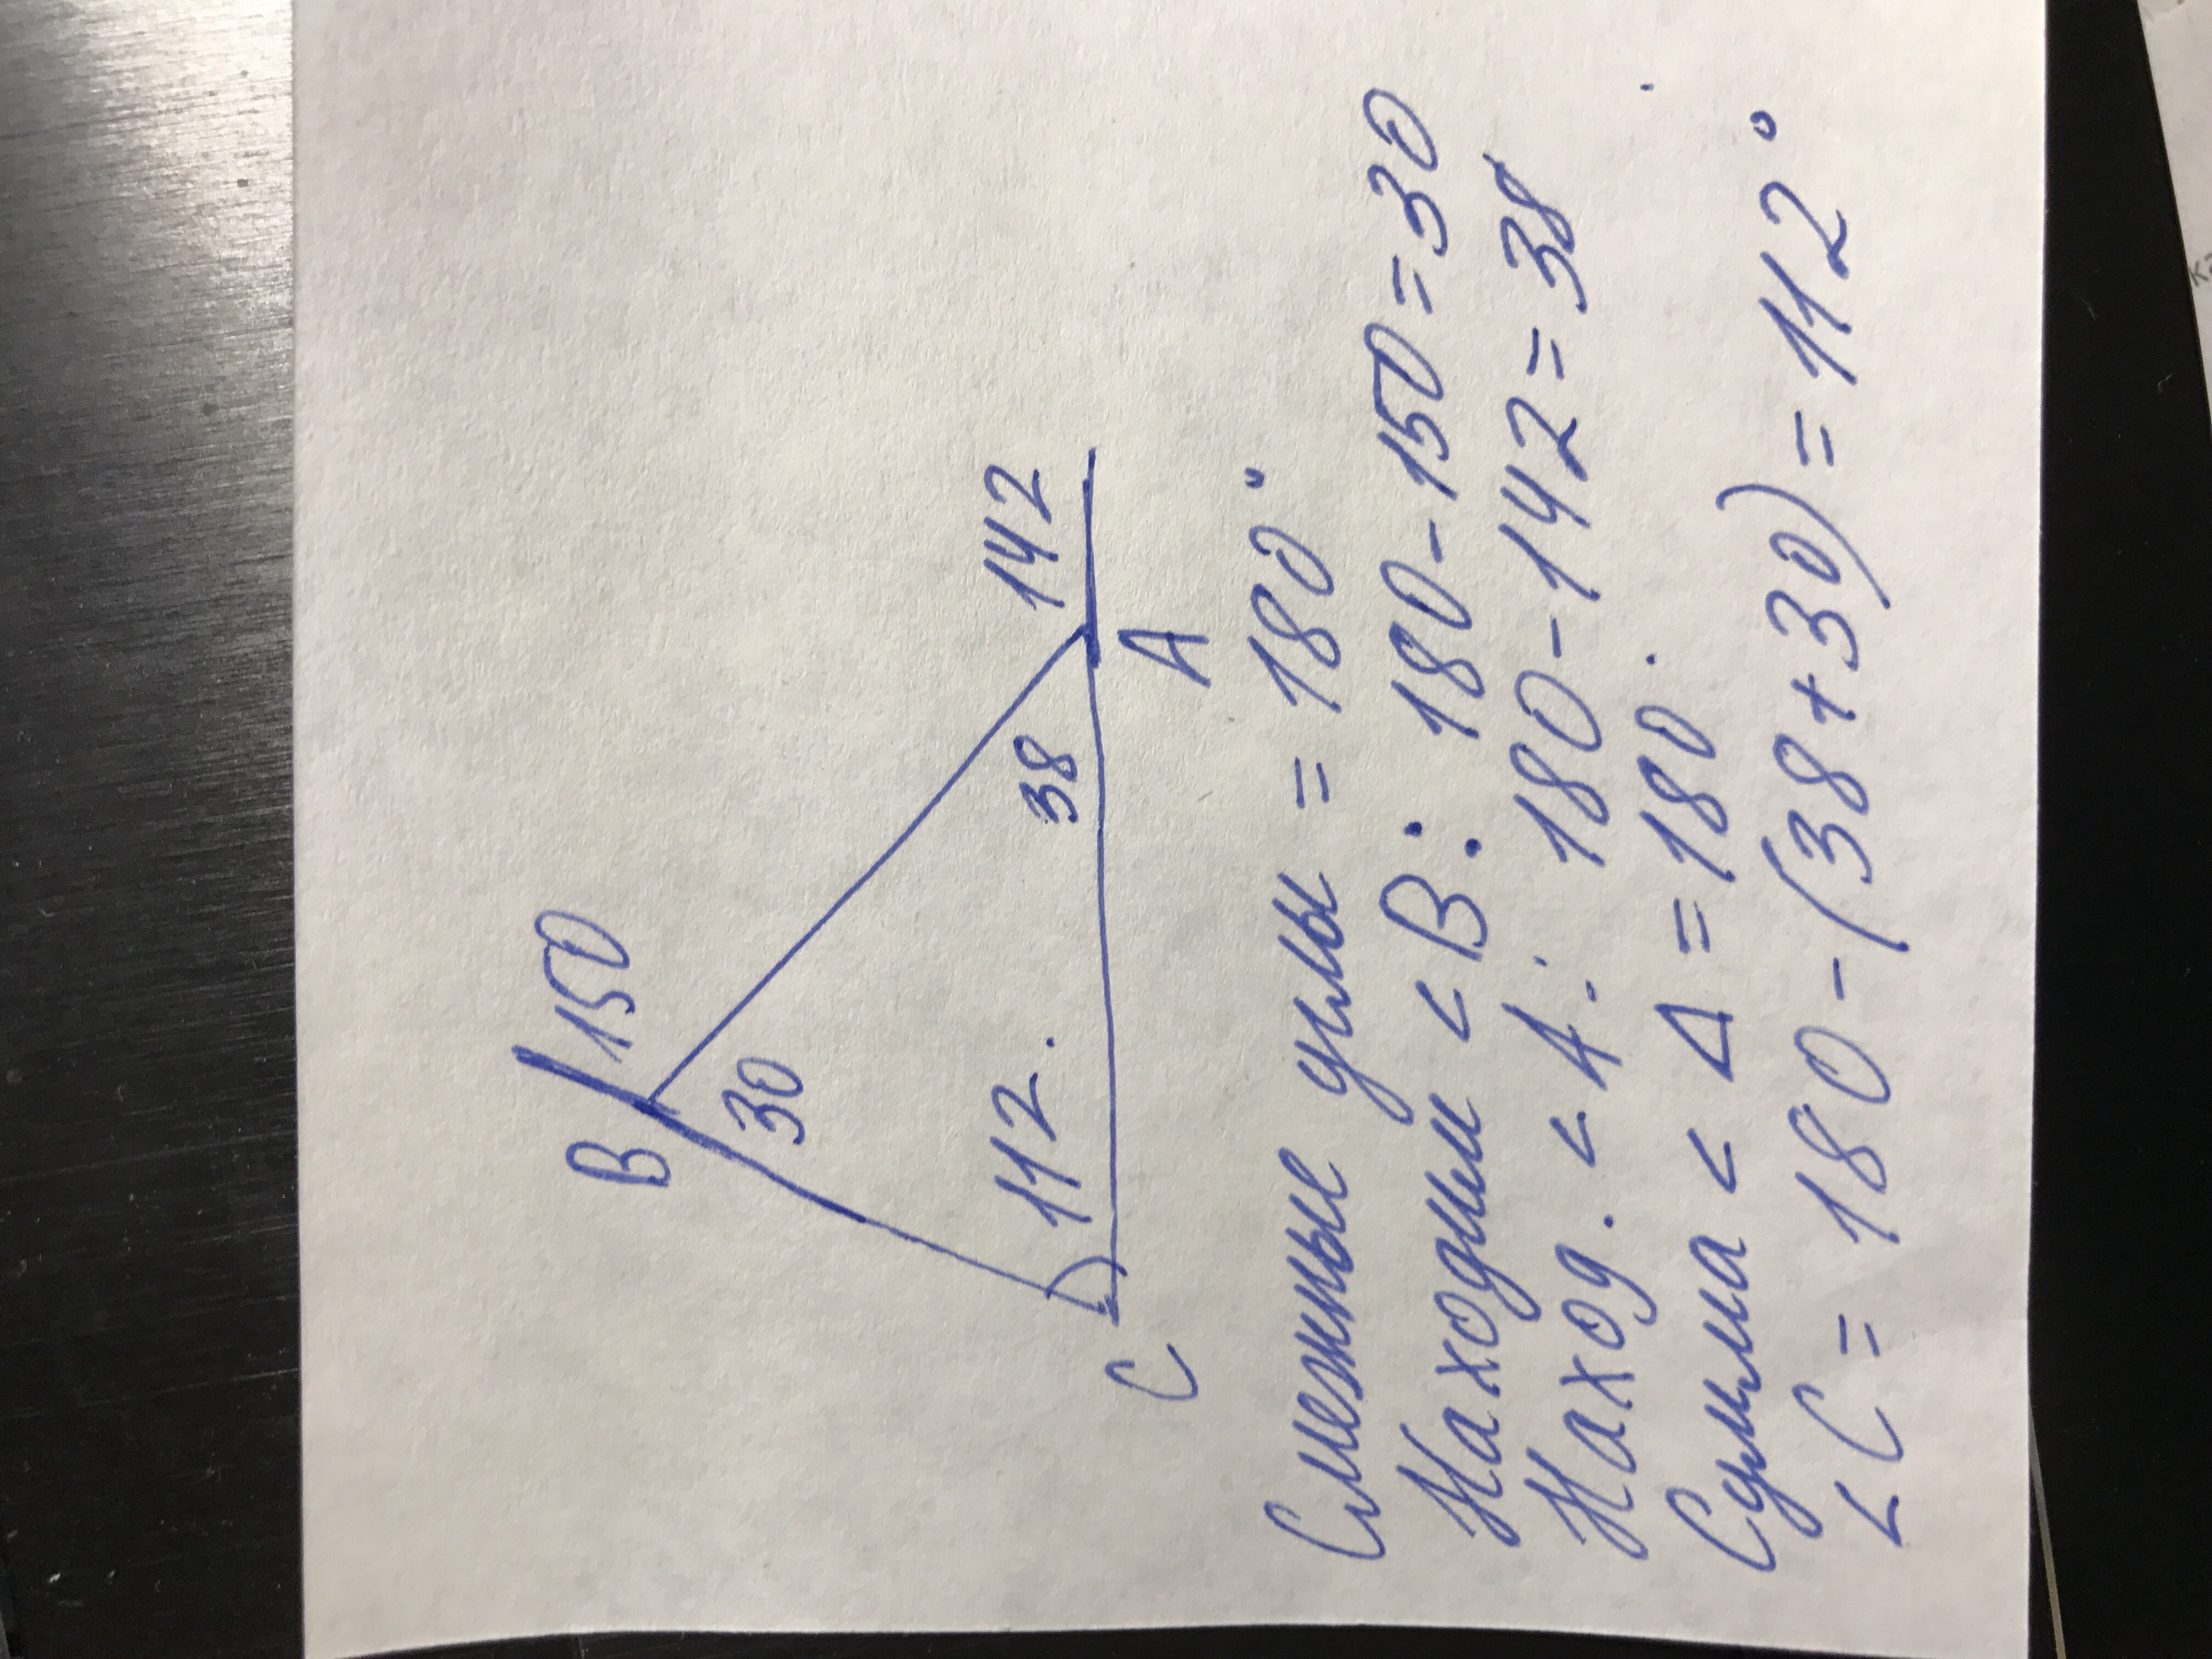 B 150
30
142
112.
38
C
A
Смежные углы = 180°
Находим < B: 180-150=30
Наход. < A: 180-142=38
Сумма < Δ = 180.
<C = 180-(38+30)=112°